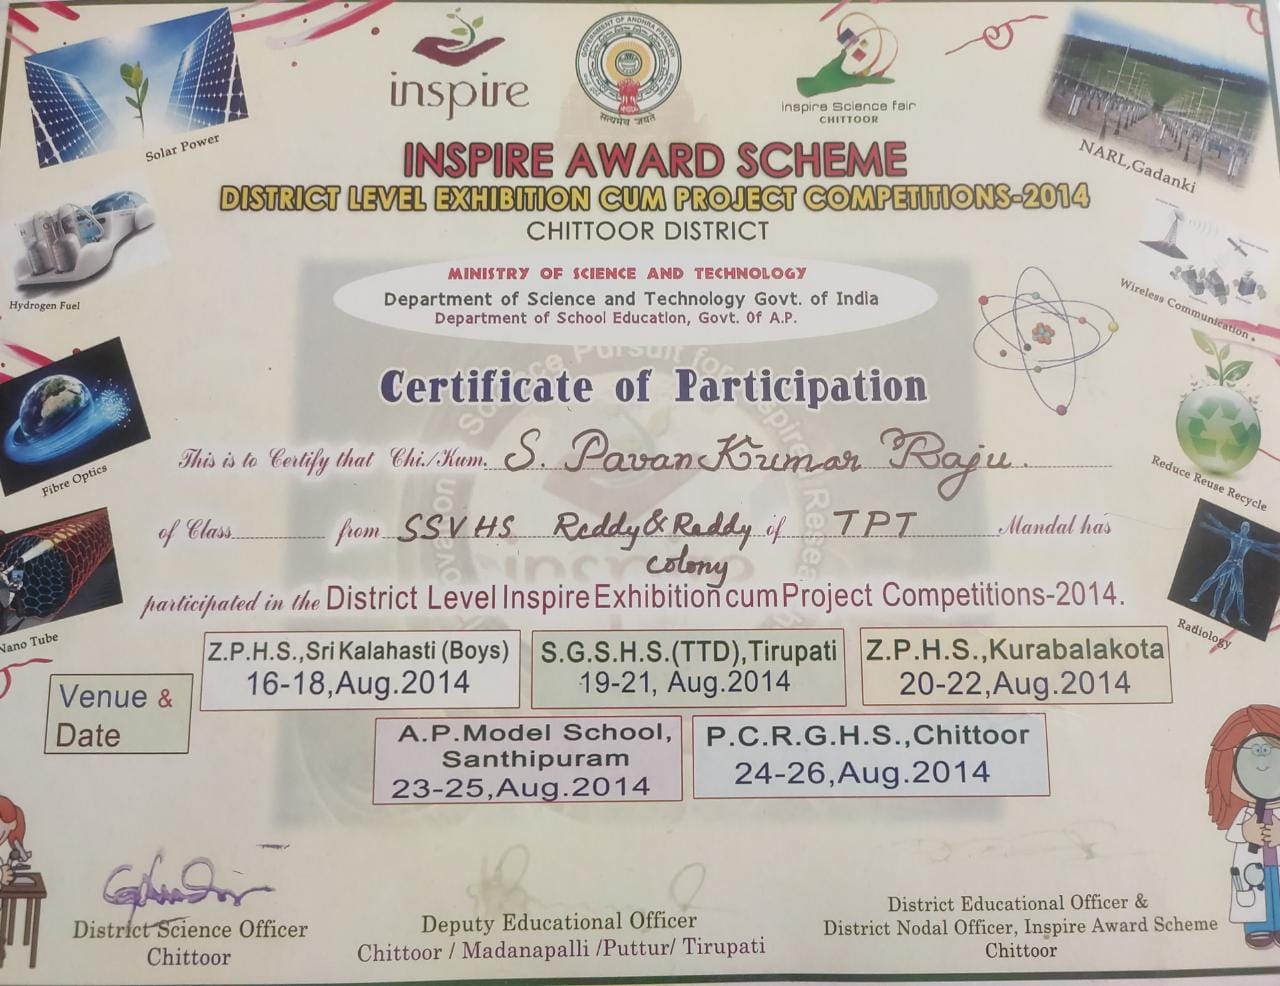 inspire
GOVERNMENT OF ANDHRA PRADESH
सत्यमेव जयते
inspire Science fair
CHITTOOR
Solar Power
NARL,Gadanki
INSPIRE AWARD SCHEME
DISTRICT LEVEL EXHIBITION CUM PROJECT COMPETITIONS-2014
CHITTOOR DISTRICT
Hydrogen Fuel
Wireless Communication
MINISTRY OF SCIENCE AND TECHNOLOGY
Department of Science and Technology Govt. of India
Department of School Education, Govt. Of A.P.
Science Pursuit for Inspired Research
Certificate of Participation
Fibre Optics
Reduce Reuse Recycle
This is to Certify that Chi./Kum. S. Pavan Kumar Raju.
of Class from SSVHS Reddy & Reddy of TPT Mandal has
colony
inspire
participated in the District Level Inspire Exhibition cum Project Competitions-2014.
Nano Tube
Radiology
Venue & Date
Z.P.H.S.,Sri Kalahasti (Boys)
16-18,Aug.2014
S.G.S.H.S.(TTD),Tirupati
19-21, Aug.2014
Z.P.H.S.,Kurabalakota
20-22,Aug.2014
A.P.Model School,
Santhipuram
23-25,Aug.2014
P.C.R.G.H.S.,Chittoor
24-26,Aug.2014
District Science Officer
Chittoor
Deputy Educational Officer
Chittoor / Madanapalli /Puttur/ Tirupati
District Educational Officer &
District Nodal Officer, Inspire Award Scheme
Chittoor